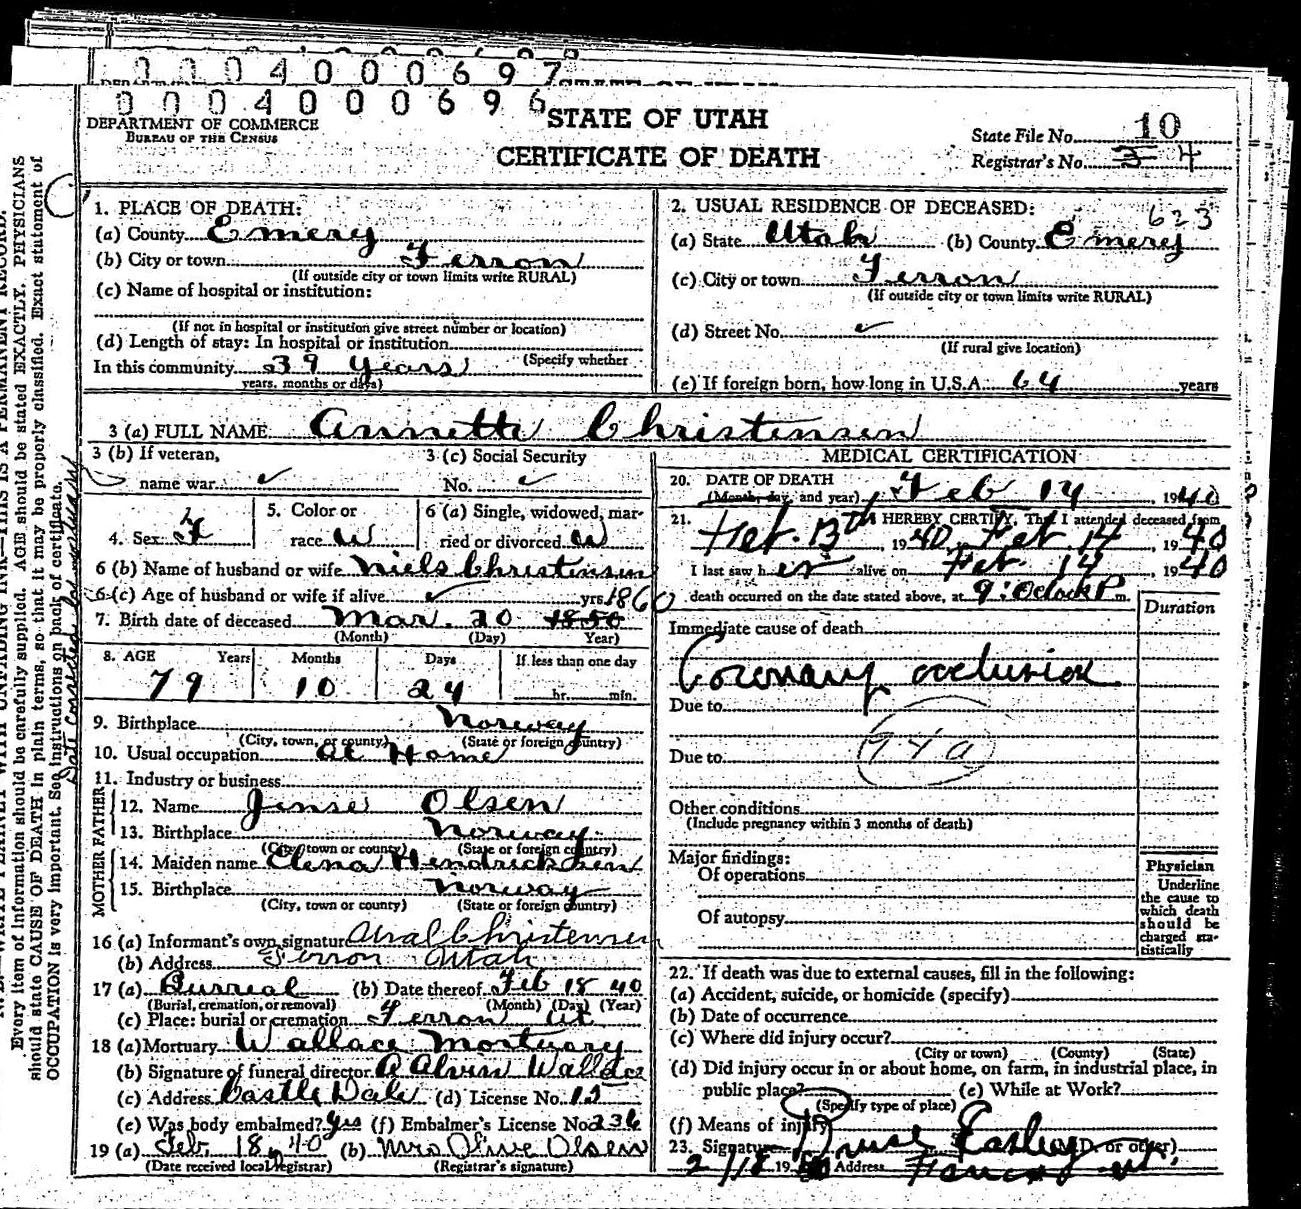 0 0 0 4 0 0 0 6 9 7
0 0 0 4 0 0 0 6 9 6
DEPARTMENT OF COMMERCE
BUREAU OF THE CENSUS
STATE OF UTAH
CERTIFICATE OF DEATH
State File No. 10
Registrar's No. 3 4
1. PLACE OF DEATH:
(a) County Emery
(b) City or town Ferron
(If outside city or town limits write RURAL)
(c) Name of hospital or institution:
(If not in hospital or institution give street number or location)
(d) Length of stay: In hospital or institution
(Specify whether
In this community 39 years
years, months or days)
2. USUAL RESIDENCE OF DECEASED: 623
(a) State Utah (b) County Emery
(c) City or town Ferron
(If outside city or town limits write RURAL)
(d) Street No. ✓
(If rural give location)
(e) If foreign born, how long in U.S.A. 64 years
3 (a) FULL NAME Annette Christensen
3 (b) If veteran,
name war ✓
3 (c) Social Security
No. ✓
4. Sex F
5. Color or
race W
6 (a) Single, widowed, mar-
ried or divorced W
6 (b) Name of husband or wife Niels Christensen
6 (c) Age of husband or wife if alive ✓ yrs. 1860
7. Birth date of deceased Mar. 20 1850
(Month) (Day) Year)
8. AGE Years Months Days If less than one day
79 10 24 hr. min.
9. Birthplace Norway
(City, town, or county) (State or foreign country)
10. Usual occupation at Home
11. Industry or business
FATHER
12. Name Jense Olsen
13. Birthplace Norway
(City, town or county) (State or foreign country)
MOTHER
14. Maiden name Elena Hendricksen
15. Birthplace Norway
(City, town or county) (State or foreign country)
16 (a) Informant's own signature Christensen
(b) Address Ferron Utah
17 (a) Burreal (b) Date thereof Feb 18 40
(Burial, cremation, or removal) (Month) (Day) (Year)
(c) Place: burial or cremation Ferron Ut
18 (a) Mortuary Wallace Mortuary
(b) Signature of funeral director A Alvin Wallace
(c) Address Castle Dale (d) License No. 12
(e) Was body embalmed? yes (f) Embalmer's License No 236
19 (a) Feb. 18, 40 (b) Mrs Olive Olsen
(Date received local registrar) (Registrar's signature)
MEDICAL CERTIFICATION
20. DATE OF DEATH
(Month, day, and year) Feb 14, 1940
21. I HEREBY CERTIFY, That I attended deceased from
Feb. 13th, 1940, Feb 14, 1940
I last saw her alive on Feb. 14, 1940
death occurred on the date stated above, at 9:Oclock P m.
Duration
Immediate cause of death
Coronary occlusion
Due to
94a
Due to
Other conditions
(Include pregnancy within 3 months of death)
Major findings:
Of operations
Of autopsy
Physician
Underline
the cause to
which death
should be
charged sta-
tistically
22. If death was due to external causes, fill in the following:
(a) Accident, suicide, or homicide (specify)
(b) Date of occurrence
(c) Where did injury occur?
(City or town) (County) (State)
(d) Did injury occur in or about home, on farm, in industrial place, in
public place? (e) While at Work?
(Specify type of place)
(f) Means of injury
23. Signature Bruse Easley (M.D. or other)
2/18 1940 Address Ut.
Every item of information should be carefully supplied. AGE should be stated EXACTLY. PHYSICIANS
should state CAUSE OF DEATH in plain terms, so that it may be properly classified. Exact statement of
OCCUPATION is very important. See instructions on back of certificate.